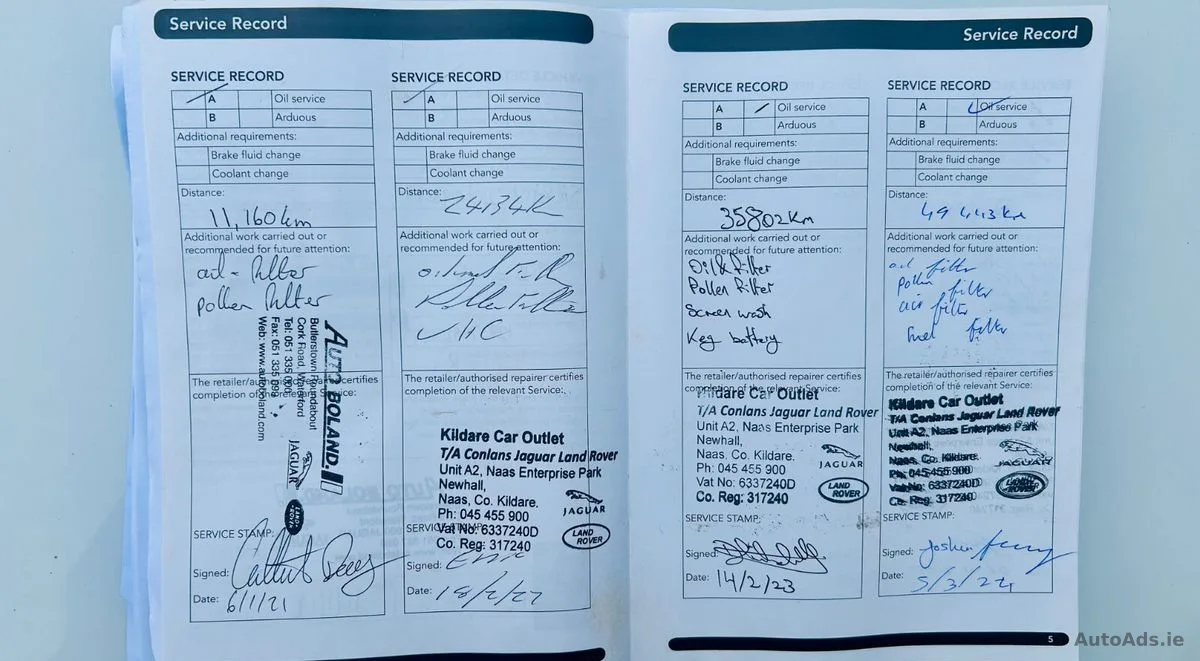 Service Record
SERVICE RECORD
A Oil service
B Arduous
Additional requirements:
Brake fluid change
Coolant change
Distance:
11,160km
Additional work carried out or
recommended for future attention:
oil - filter
pollen filter
AUTO BOLAND.
Butlerstown Roundabout
Cork Road, Waterford
Tel: 051 335 000
Fax: 051 335 099
Web: www.autoboland.com
JAGUAR
LAND ROVER
The retailer/authorised repairer certifies
completion of the relevant Service:
SERVICE STAMP:
Signed:
Date: 6/1/21
SERVICE RECORD
A Oil service
B Arduous
Additional requirements:
Brake fluid change
Coolant change
Distance:
24134K
Additional work carried out or
recommended for future attention:
VHC
The retailer/authorised repairer certifies
completion of the relevant Service:
Kildare Car Outlet
T/A Conlans Jaguar Land Rover
Unit A2, Naas Enterprise Park
Newhall,
Naas, Co. Kildare.
Ph: 045 455 900
Vat No: 6337240D
Co. Reg: 317240
JAGUAR
LAND ROVER
SERVICE STAMP:
Signed:
Date:
Service Record
SERVICE RECORD
A Oil service
B Arduous
Additional requirements:
Brake fluid change
Coolant change
Distance:
35802Km
Additional work carried out or
recommended for future attention:
Oil & filter
Pollen filter
Screen wash
Key battery
The retailer/authorised repairer certifies
completion of the relevant Service:
Kildare Car Outlet
T/A Conlans Jaguar Land Rover
Unit A2, Naas Enterprise Park
Newhall,
Naas, Co. Kildare.
Ph: 045 455 900
Vat No: 6337240D
Co. Reg: 317240
JAGUAR
LAND ROVER
SERVICE STAMP:
Signed:
Date: 14/2/23
SERVICE RECORD
A Oil service
B Arduous
Additional requirements:
Brake fluid change
Coolant change
Distance:
49 443 km
Additional work carried out or
recommended for future attention:
oil filter
pollen filter
air filter
fuel filter
The retailer/authorised repairer certifies
completion of the relevant Service:
Kildare Car Outlet
T/A Conlans Jaguar Land Rover
Unit A2, Naas Enterprise Park
Newhall,
Naas, Co. Kildare.
Ph: 045 455 900
Vat No: 6337240D
Co. Reg: 317240
JAGUAR
LAND ROVER
SERVICE STAMP:
Signed: Joshua
Date: 5/3/24
5
AutoAds.ie